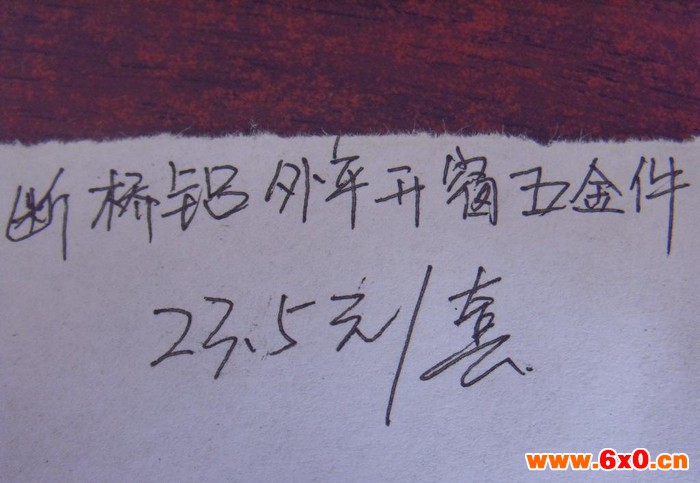 断桥铝外平开窗五金件
23.5元/套
www.6x0.cn